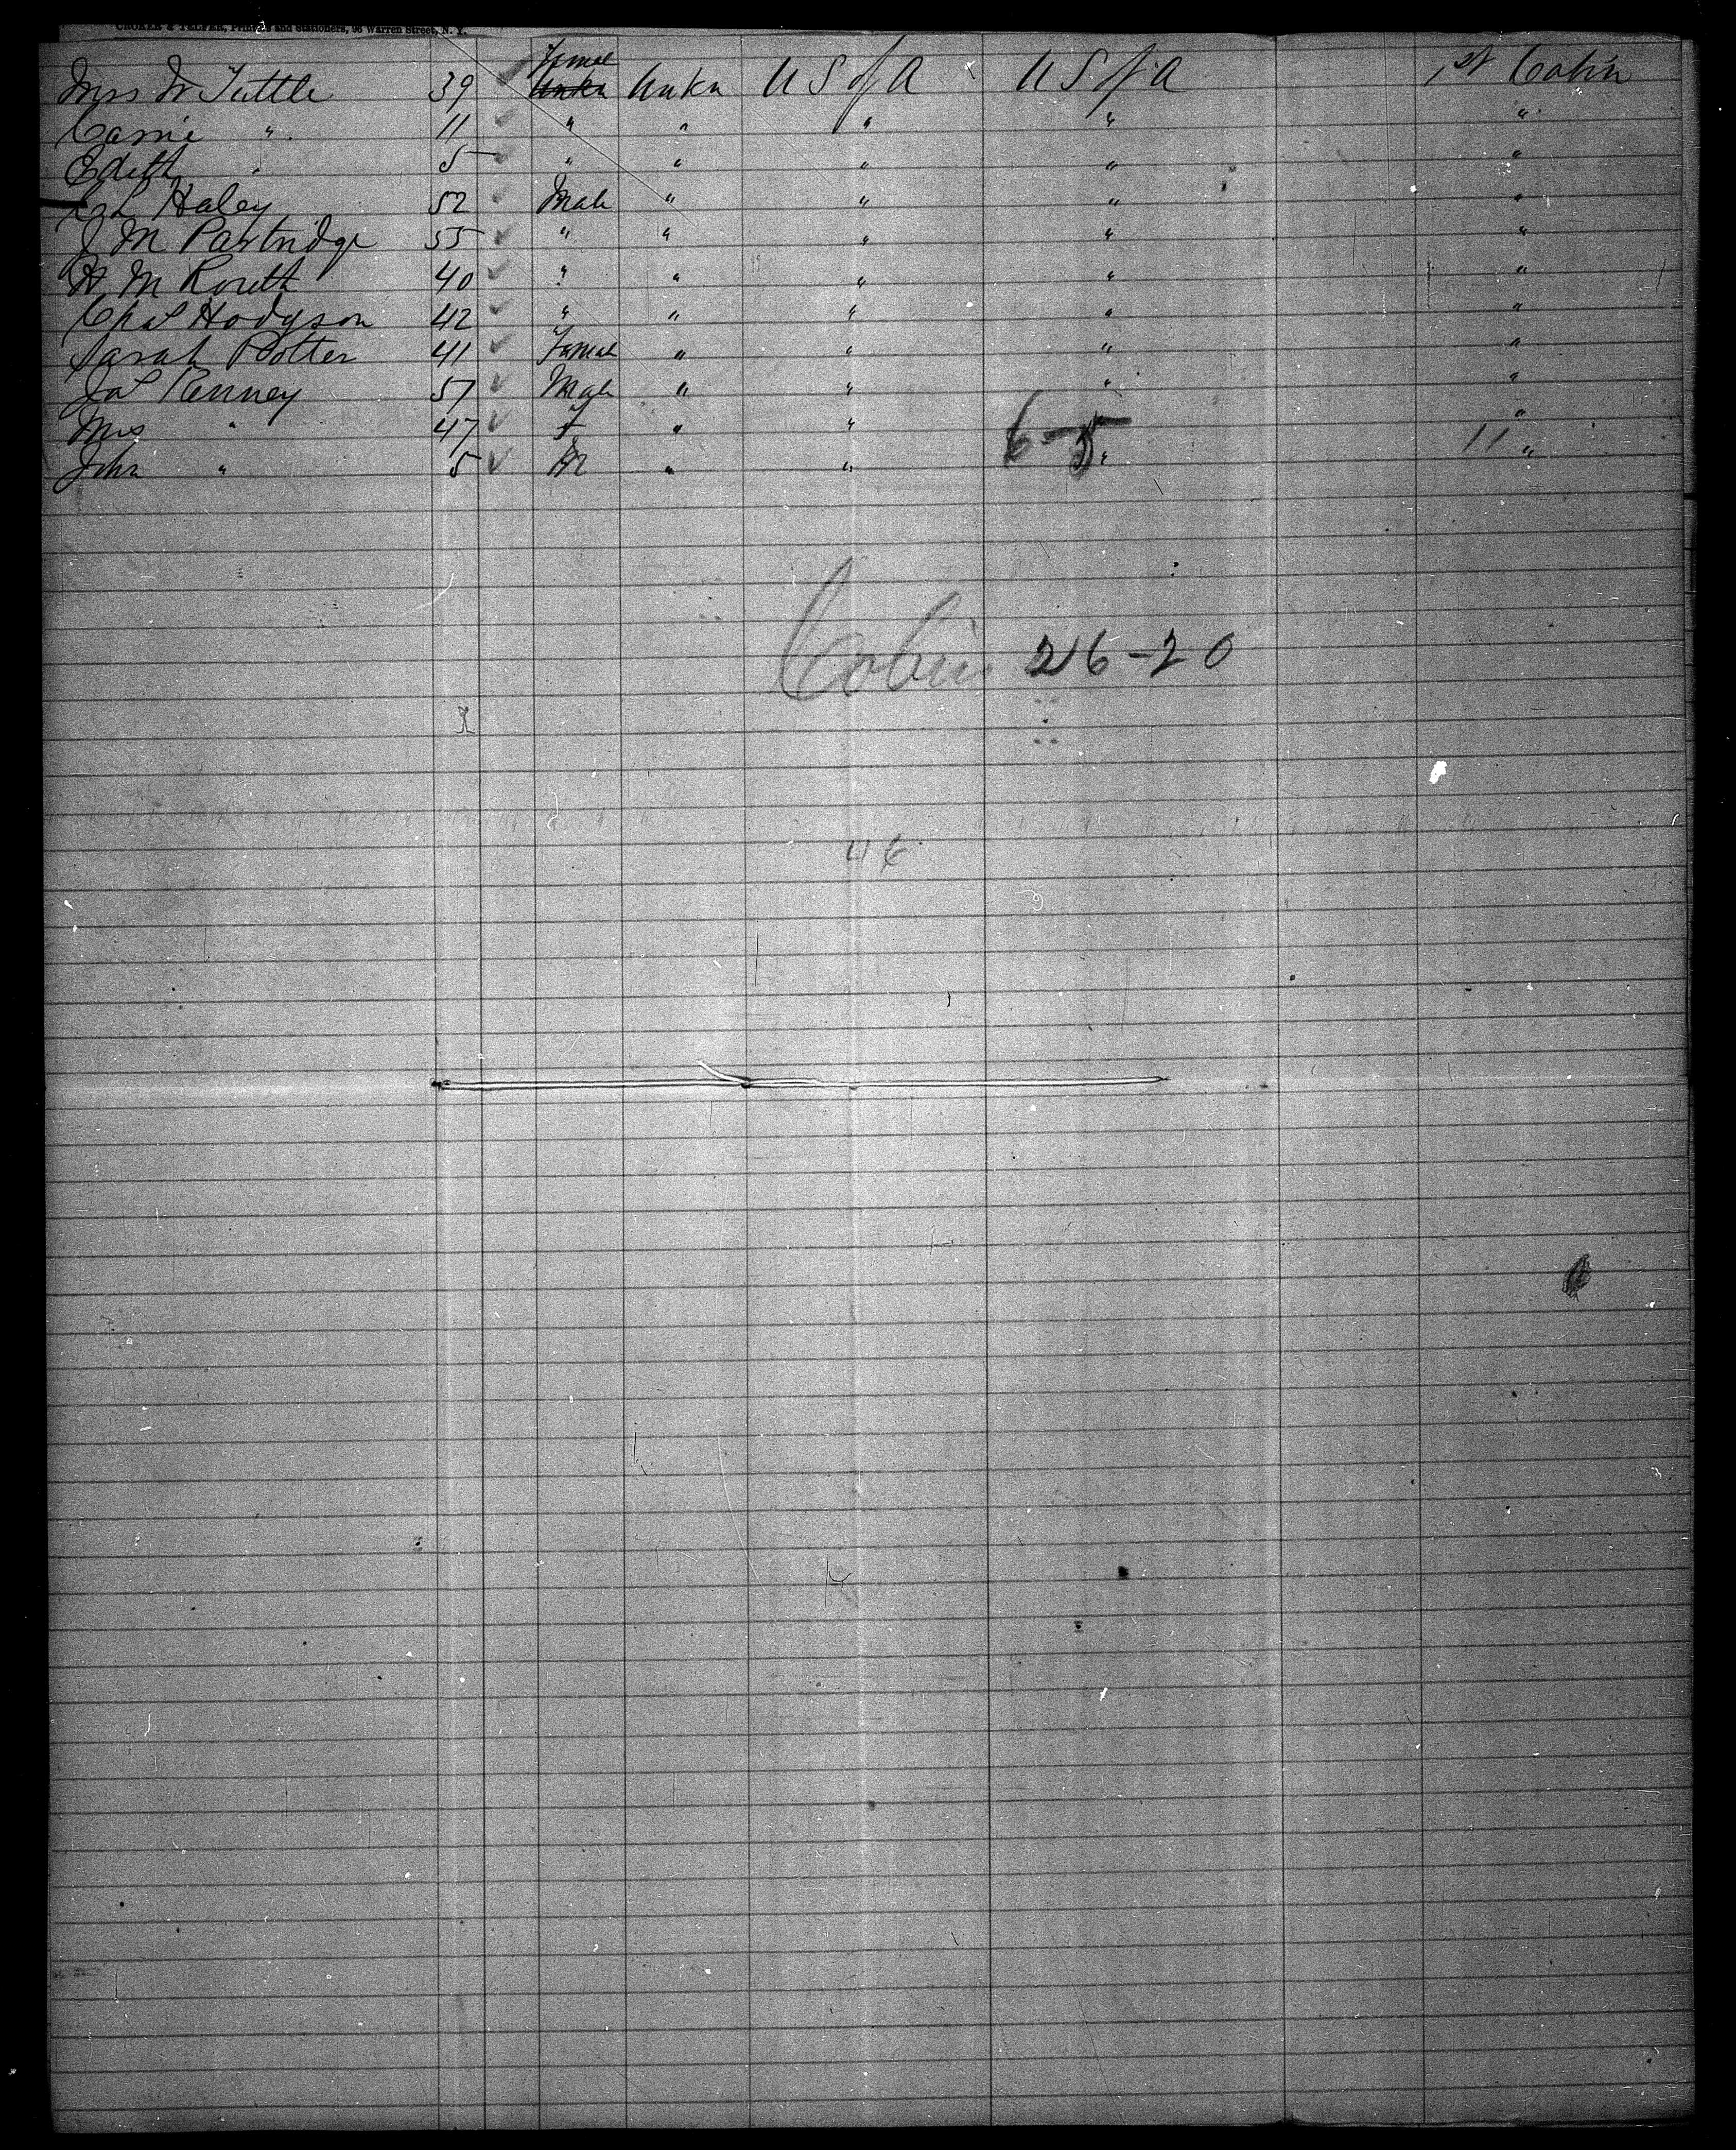 CROKER & TELFER, Printers and Stationers, 96 Warren Street, N. Y.
Mrs W Tuttle 39 ✓ Female Unkn Unkn U S of A U S of A 1st Cabin
Carrie " 11 ✓ " " " " "
Edith " 5 ✓ " " " " "
Haley 52 Male " " " "
J M Partridge 55 ✓ " " " " "
H M Routh 40 ✓ " " " " "
Chas Hodgson 42 ✓ " " " " "
Sarah Potter 41 ✓ Female " " " "
Jas Penney 57 ✓ Male " " " "
Mrs " 47 ✓ F " " "
John " 5 ✓ M " " " "
6-5 11
Cabin 26-20